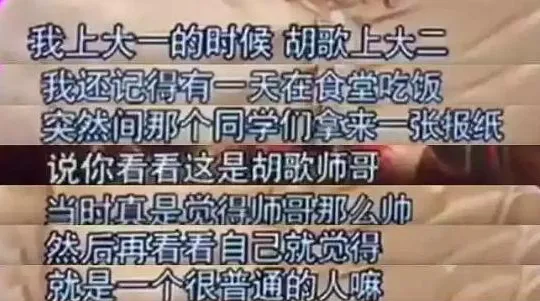 我上大一的时候 胡歌上大二
我还记得有一天在食堂吃饭
突然间那个同学们拿来一张报纸
说你看看这是胡歌师哥
当时真是觉得师哥那么帅
然后再看看自己就觉得
就是一个很普通的人嘛